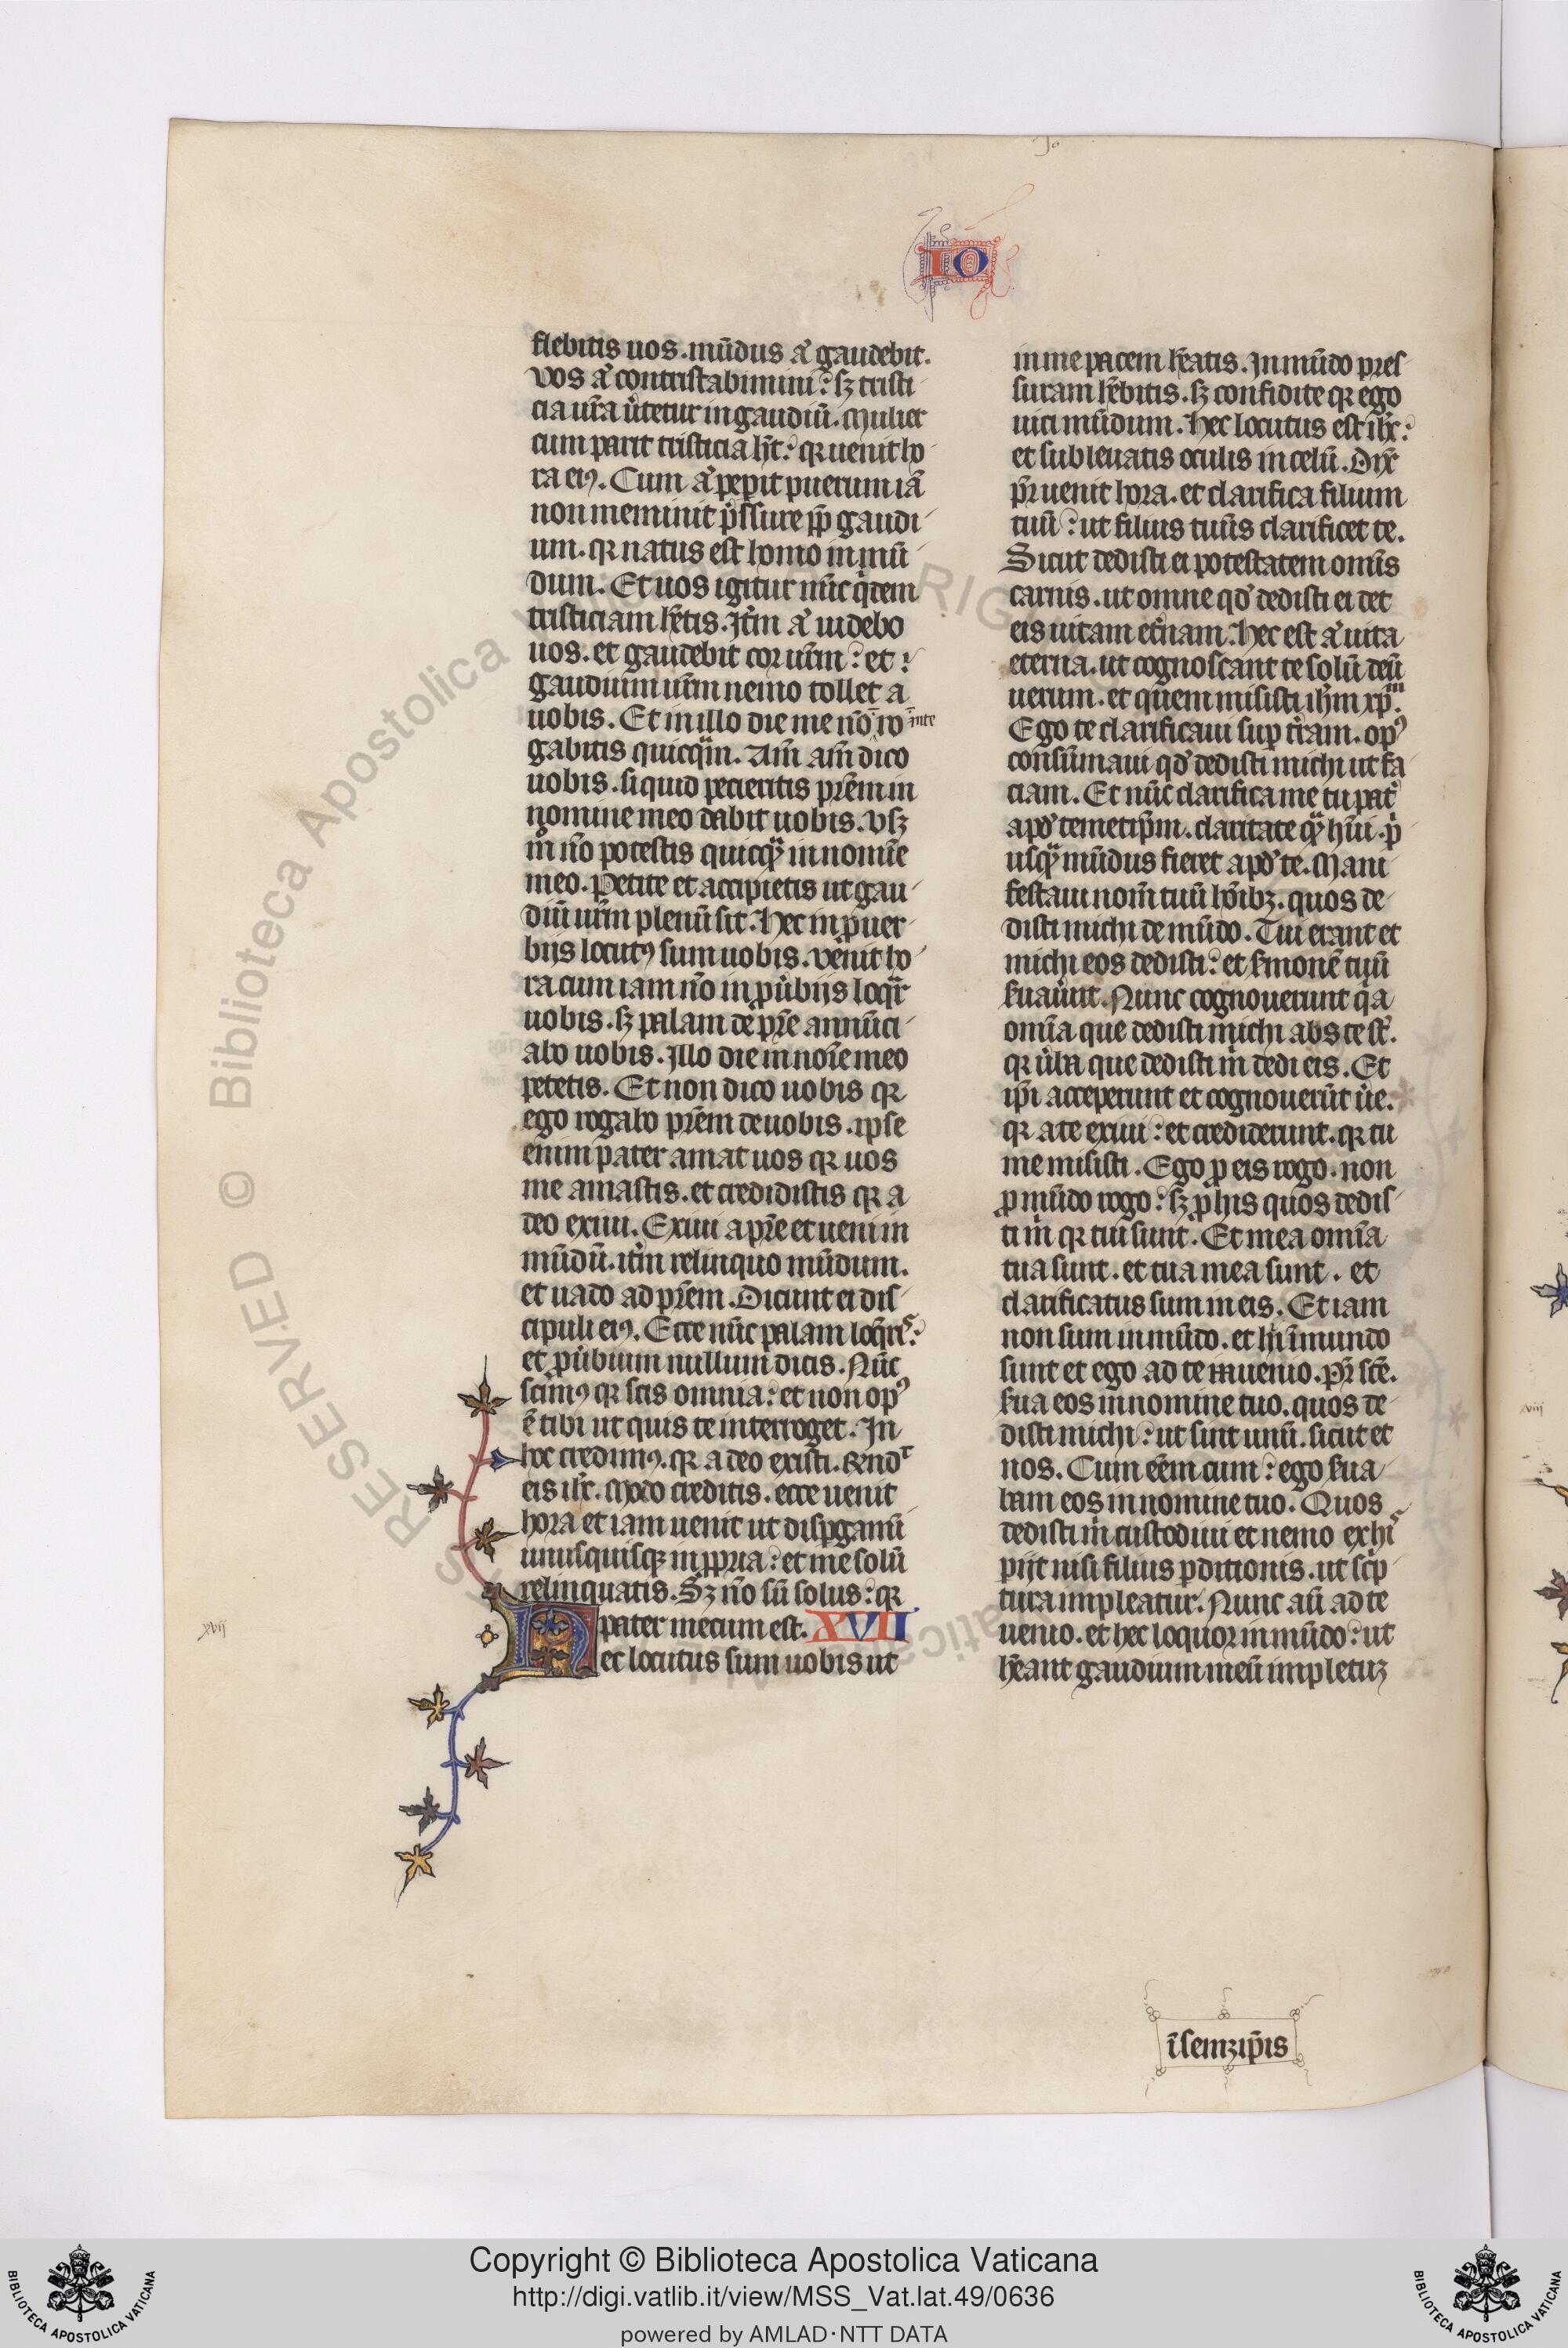 Jo
IO
flebitis uos. mūdus aͣ gaudebit.
vos aͣ contristabimini: sꝫ tristi
cia ur̄a ùtetur in gaudiū. Mulier
cum parit tristicia h̄t: qꝛ uenit ho
ra eiꝰ. Cum aͣ peꝑit puerum iā
non meminit p̄ssure ꝓp̄ gaudi
um. qꝛ natus est homo in mū
dum. Et uos igitur nūc qͥdem
tristiciam h̄etis. Itm̄ aͣ uidebo
uos. et gaudebit cor ur̄m: et
gaudium ur̄m nemo tollet a
uobis. Et in illo die me nō ro
inte
gabitis quicqͣm. Am̄ am̄ dico
uobis. siquid pecieritis pr̄em in
nomine meo dabit uobis. vsqꝫ
mͦ nō potestis quicqͣꝫ in nomīe
meo. Petite et accipietis ut gau
diū ur̄m plenū sit. Hec in ꝓuer
bijs locutꝰ sum uobis. venit ho
ra cum iam nō in ꝓùbijs loqͣr
uobis. sꝫ palam de pr̄e annūci
abo uobis. Illo die in noīe meo
petetis. Et non dico uobis qꝛ
ego rogabo pr̄em de uobis. ipse
enim pater amat uos qꝛ uos
me amastis. et credidistis qꝛ a
deo exiui. Exiui a pr̄e et ueni in
mūdū. itm̄ relinquo mūdum.
et uado ad pr̄em. Dicunt ei dis
cipuli eiꝰ. Ecce nūc palam loqͣris:
et ꝓùbium nullum dicis. Nūc
scimꝰ qꝛ scis omnia: et non opꝰ
ē tibi ut quis te interroget. In
hoc credimꝰ. qꝛ a deo existi. Rendᵗ
eis ihc̄. Modo creditis. ecce uenit
hora et iam uenit ut disꝑgamī
unusquisqꝫ in ꝓpria: et me solū
relinquatis. Sꝫ nō sū solus: qꝛ
pater mecum est. XVII
xvij
Hec locutus sum uobis ut
in me pacem h̄eatis. In mūdo pres
suram h̄ebitis. sꝫ confidite qꝛ ego
uici mūdum. Hec locutus est ihc̄:
et subleuatis oculis in celū. Dix̄
pr̄ uenit hora. et clarifica filium
tuū: ut filius tuus clarificet te.
Sicut dedisti ei potestatem omīs
carnis. ut omne qd̄ dedisti ei det
eis uitam et̄nam. Hec est aͣ uita
eterna. ut cognoscant te solū deū
uerum. et quem misisti ihm̄ xp̄m.
Ego te clarificaui suꝑ tr̄am. opꝰ
consūmaui qd̄ dedisti michi ut fa
ciam. Et nūc clarifica me tu pat̄
apd̄ temetip̄m. claritate qͣꝫ h̄ui. p̄
usqͣꝫ mūdus fieret apd̄ te. Mani
festaui nom̄ tuū hoībꝫ. quos de
disti michi de mūdo. Tui erant et
michi eos dedisti: et sͬmonē tuū
sͬuauūt. Nunc cognouerunt qͥa
omīa que dedisti michi abs te st̄.
qꝛ ùba que dedisti mͥ dedi eis. Et
ip̄i acceperunt et cognouerūt ùe.
qꝛ a te exiui: et crediderunt. qꝛ tu
me misisti. Ego ꝓ eis rogo. non
ꝓ mūdo rogo: sꝫ ꝓ his quos dedis
ti mͥ qꝛ tui sunt. Et mea omīa
tua sunt. et tua mea sunt. et
clarificatus sum in eis. Et iam
non sum in mūdo. et hij ī mundo
sunt et ego ad te uenio. pr̄ scē.
sͬua eos in nomine tuo. quos de
disti michi: ut sint unū. sicut et
nos. Cum eēm cum: ego sͬua
bam eos in nomine tuo. Quos
dedisti mͥ custodiui et nemo ex hiˢ
pijt nisi filius ꝑditionis. ut scͥp
tura impleatur. Nunc aū ad te
uenio. et hec loquor in mūdo: ut
h̄eant gaudium meū impletuꝫ
xviij
ī semꝫip̄is
Copyright © Biblioteca Apostolica Vaticana
http://digi.vatlib.it/view/MSS_Vat.lat.49/0636
powered by AMLAD·NTT DATA
BIBLIOTECA APOSTOLICA VATICANA
BIBLIOTECA APOSTOLICA VATICANA